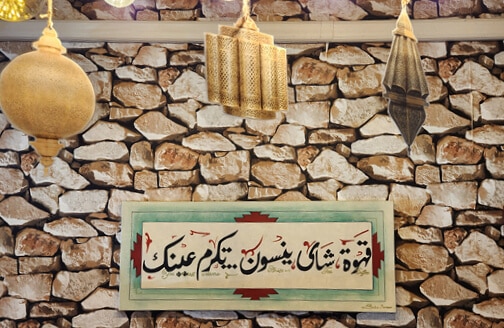 قهوة شاي ينسون .. تكرم عينك